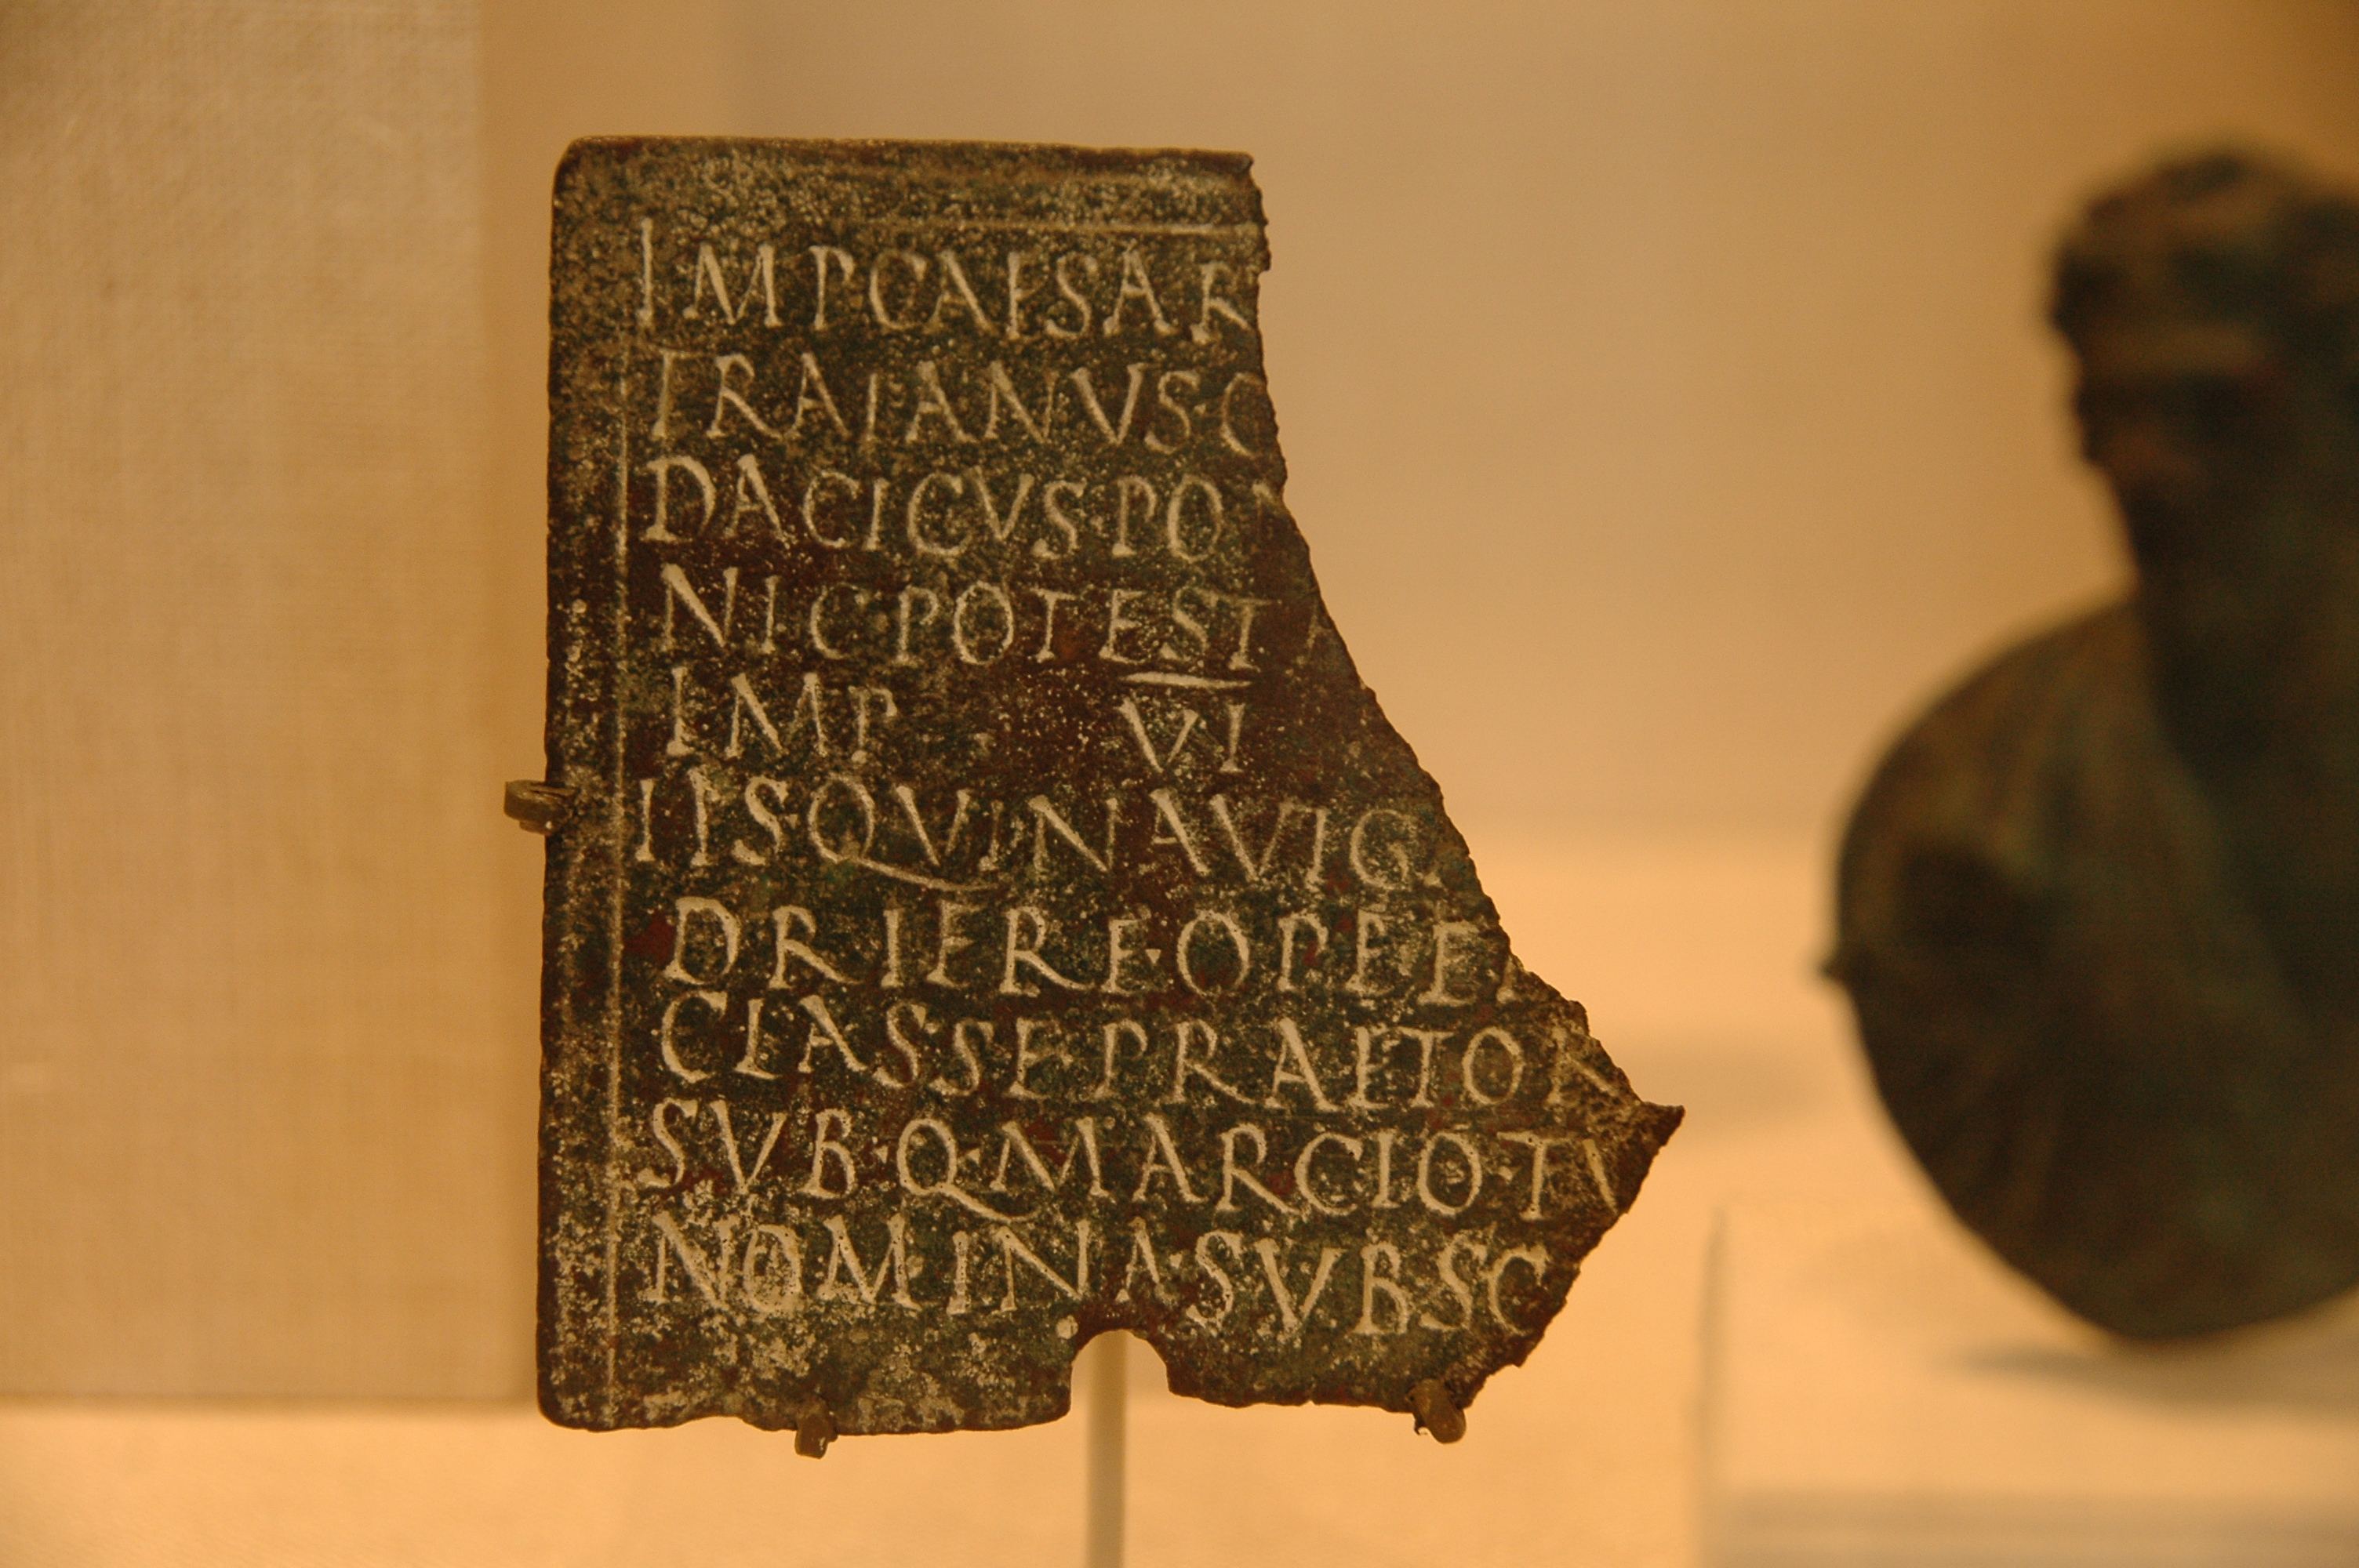 IMP CAESAR
TRAIANVS·G
DACICVS·PON
NIC POTEST A
IMP VI
IISQVINAVIGA
DRIERE·OPEET
CLASSE·PRAETOR
SVB·Q·MARCIO·TV
NOMINA·SVB·SC